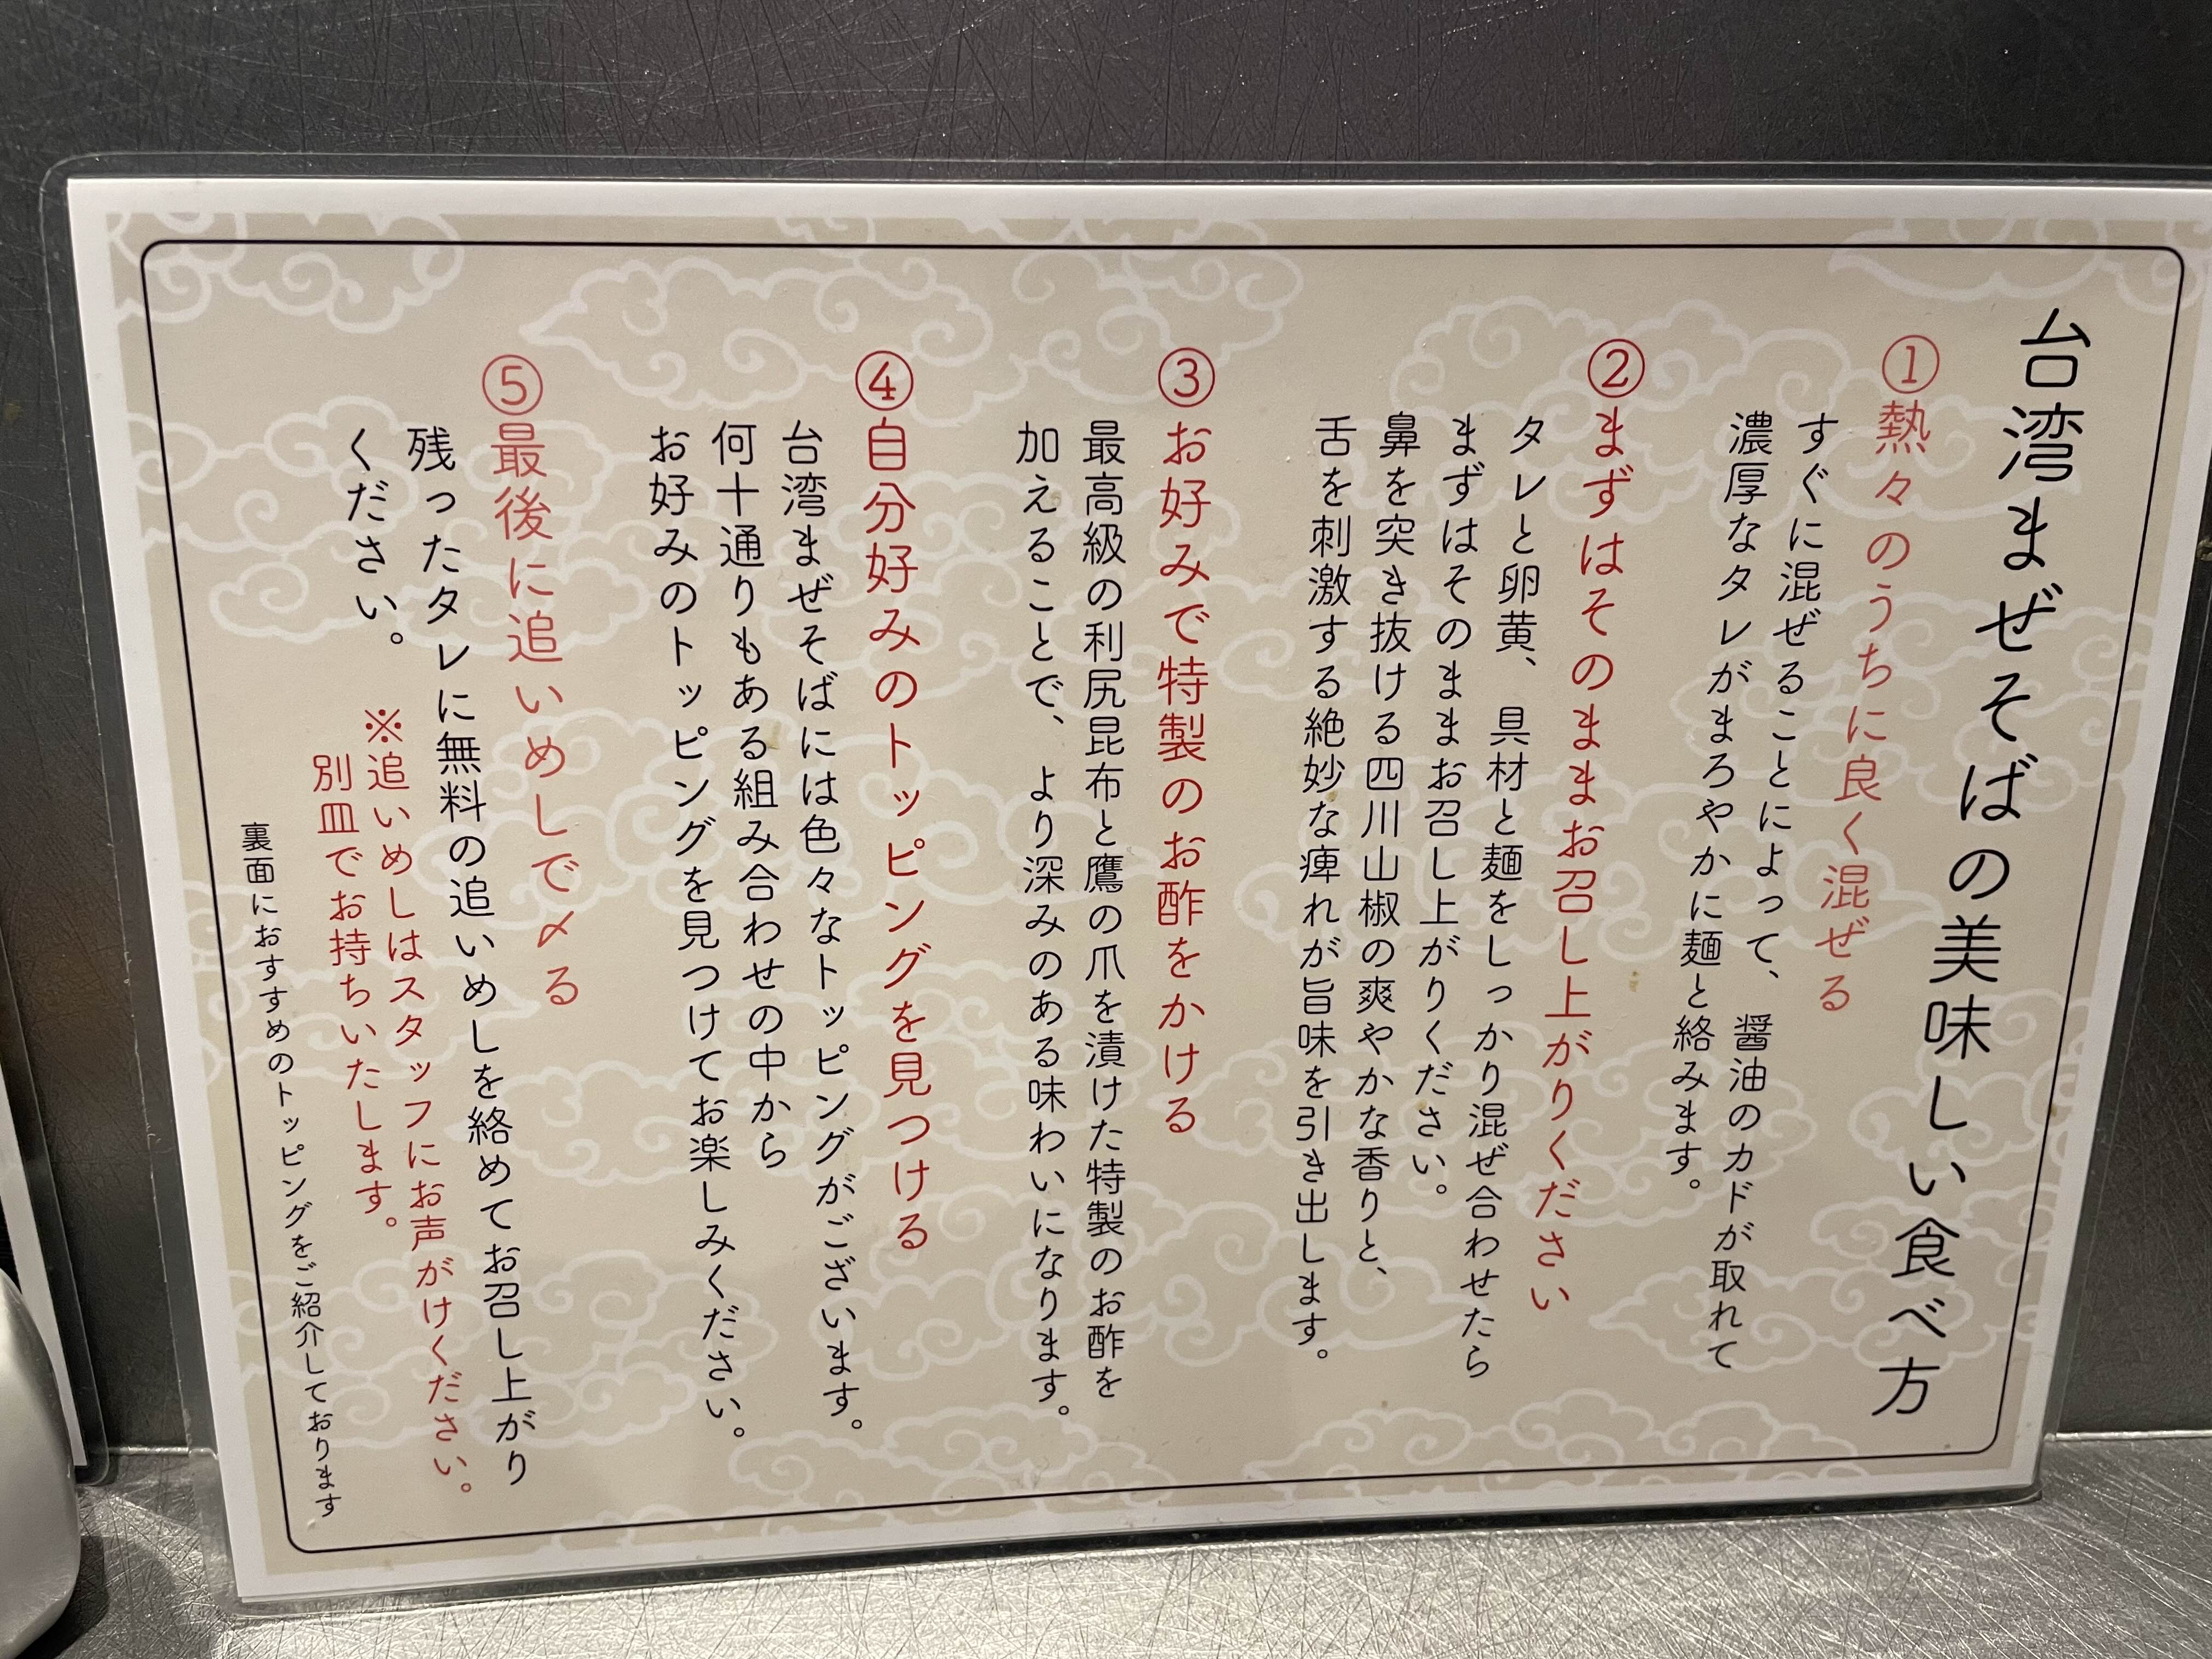 台湾まぜそばの美味しい食べ方
①熱々のうちに良く混ぜる
すぐに混ぜることによって、醤油のカドが取れて
濃厚なタレがまろやかに麺と絡みます。
②まずはそのままお召し上がりください
タレと卵黄、具材と麺をしっかり混ぜ合わせたら
まずはそのままお召し上がりください。
鼻を突き抜ける四川山椒の爽やかな香りと、
舌を刺激する絶妙な痺れが旨味を引き出します。
③お好みで特製のお酢をかける
最高級の利尻昆布と鷹の爪を漬けた特製のお酢を
加えることで、より深みのある味わいになります。
④自分好みのトッピングを見つける
台湾まぜそばには色々なトッピングがございます。
何十通りもある組み合わせの中から
お好みのトッピングを見つけてお楽しみください。
⑤最後に追いめしで〆る
残ったタレに無料の追いめしを絡めてお召し上がり
ください。
※追いめしはスタッフにお声がけください。
別皿でお持ちいたします。
裏面におすすめのトッピングをご紹介しております